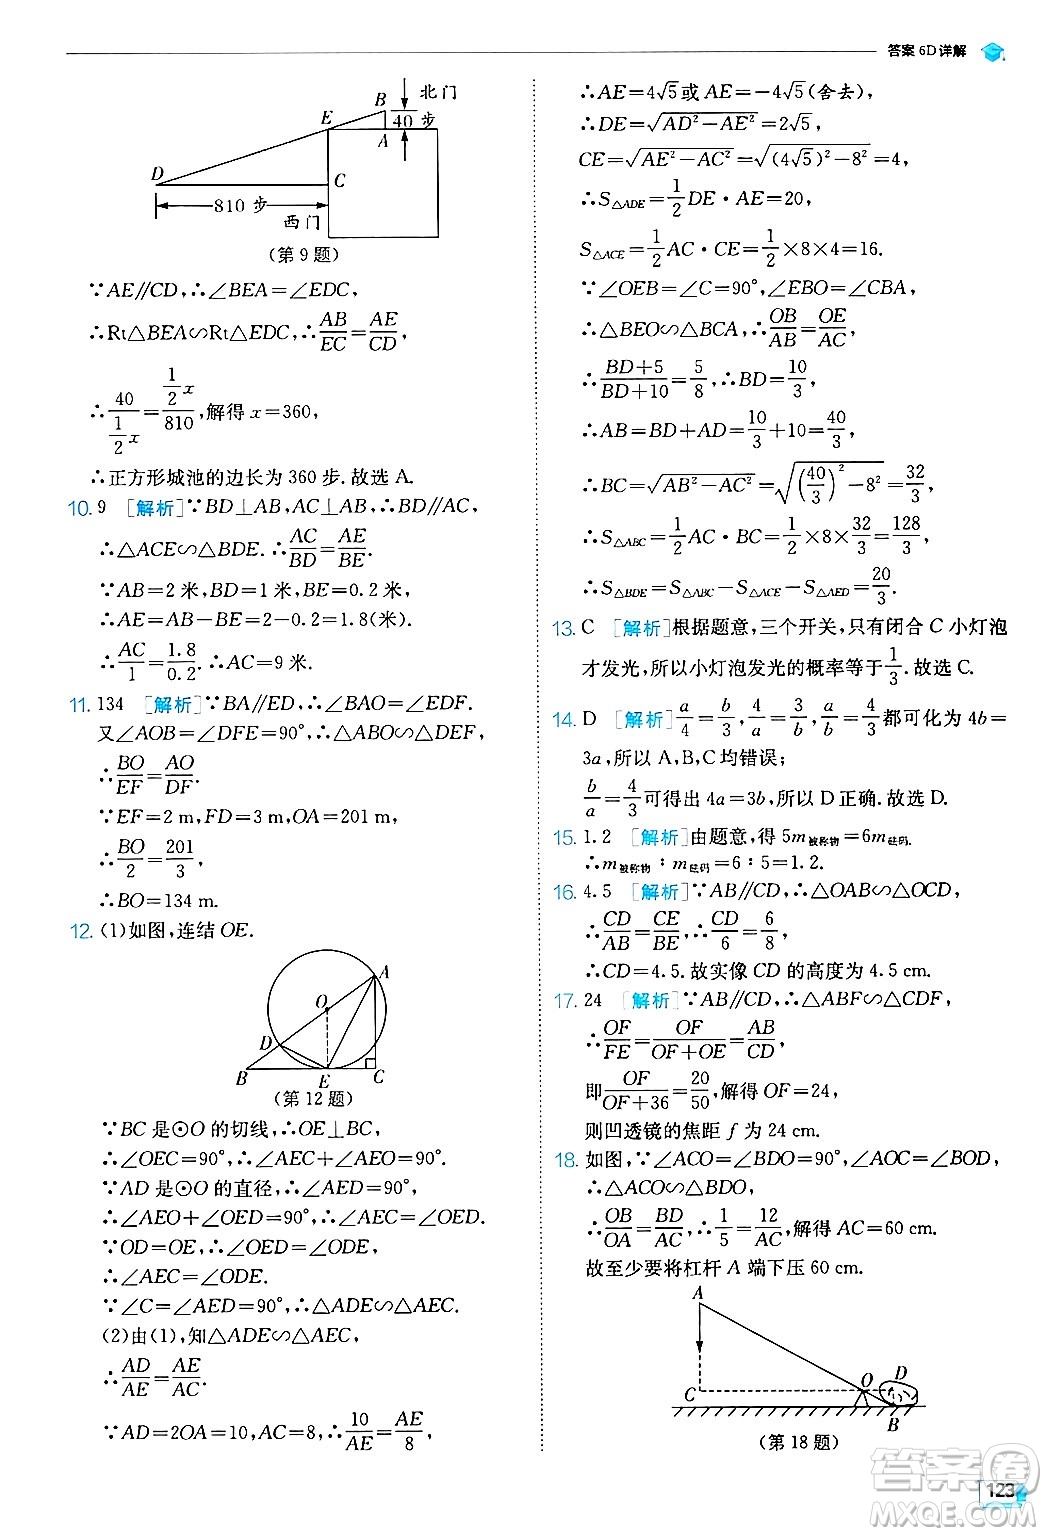 答案 6D详解
B
北门
E
40 步
A
D
C
810 步
西门
(第9题)
∵AE∥CD,∴∠BEA=∠EDC,
∴Rt△BEA∽Rt△EDC,∴AB/EC=AE/CD,
∴40/(1/2 x)=(1/2 x)/810,解得 x=360,
∴正方形城池的边长为 360 步.故选 A.
10. 9 [解析]∵BD⊥AB,AC⊥AB,∴BD∥AC,
∴△ACE∽△BDE.∴AC/BD=AE/BE.
∵AB=2 米,BD=1 米,BE=0.2 米,
∴AE=AB-BE=2-0.2=1.8(米).
∴AC/1=1.8/0.2.∴AC=9 米.
11. 134 [解析]∵BA∥ED,∴∠BAO=∠EDF.
又∠AOB=∠DFE=90°,∴△ABO∽△DEF,
∴BO/EF=AO/DF.
∵EF=2 m,FD=3 m,OA=201 m,
∴BO/2=201/3,
∴BO=134 m.
12. (1)如图,连结 OE.
A
O
D
B
E
C
(第12题)
∵BC 是⊙O 的切线,∴OE⊥BC,
∴∠OEC=90°,∴∠AEC+∠AEO=90°.
∵AD 是⊙O 的直径,∴∠AED=90°,
∴∠AEO+∠OED=90°,∴∠AEC=∠OED.
∵OD=OE,∴∠OED=∠ODE,
∴∠AEC=∠ODE.
∵∠C=∠AED=90°,∴△ADE∽△AEC.
(2)由(1),知△ADE∽△AEC,
∴AD/AE=AE/AC.
∵AD=2OA=10,AC=8,∴10/AE=AE/8,
∴AE=4√5或 AE=-4√5(舍去),
∴DE=√(AD²-AE²)=2√5,
CE=√(AE²-AC²)=√((4√5)²-8²)=4,
∴S△ADE=1/2 DE·AE=20,
S△ACE=1/2 AC·CE=1/2×8×4=16.
∵∠OEB=∠C=90°,∠EBO=∠CBA,
∴△BEO∽△BCA,∴OB/AB=OE/AC,
∴(BD+5)/(BD+10)=5/8,∴BD=10/3,
∴AB=BD+AD=10/3+10=40/3,
∴BC=√(AB²-AC²)=√((40/3)²-8²)=32/3,
∴S△ABC=1/2 AC·BC=1/2×8×32/3=128/3,
∴S△BDE=S△ABC-S△ACE-S△AED=20/3.
13. C [解析]根据题意,三个开关,只有闭合 C 小灯泡
才发光,所以小灯泡发光的概率等于1/3.故选 C.
14. D [解析]a/4=b/3,4/a=3/b,a/b=4/3都可化为 4b=
3a,所以 A,B,C 均错误;
b/a=4/3可得出 4a=3b,所以 D 正确.故选 D.
15. 1.2 [解析]由题意,得 5m被称物=6m砝码.
∴m被称物:m砝码=6:5=1.2.
16. 4.5 [解析]∵AB∥CD,∴△OAB∽△OCD,
∴CD/AB=CE/BE,∴CD/6=6/8,
∴CD=4.5.故实像 CD 的高度为 4.5 cm.
17. 24 [解析]∵AB∥CD,∴△ABF∽△CDF,
∴OF/FE=OF/(OF+OE)=AB/CD,
即OF/(OF+36)=20/50,解得 OF=24,
则凹透镜的焦距 f 为 24 cm.
18. 如图,∵∠ACO=∠BDO=90°,∠AOC=∠BOD,
∴△ACO∽△BDO,
∴OB/OA=BD/AC,∴1/5=12/AC,解得 AC=60 cm.
故至少要将杠杆 A 端下压 60 cm.
A
C
O
D
B
(第18题)
123
答案圈
MXQE.COM